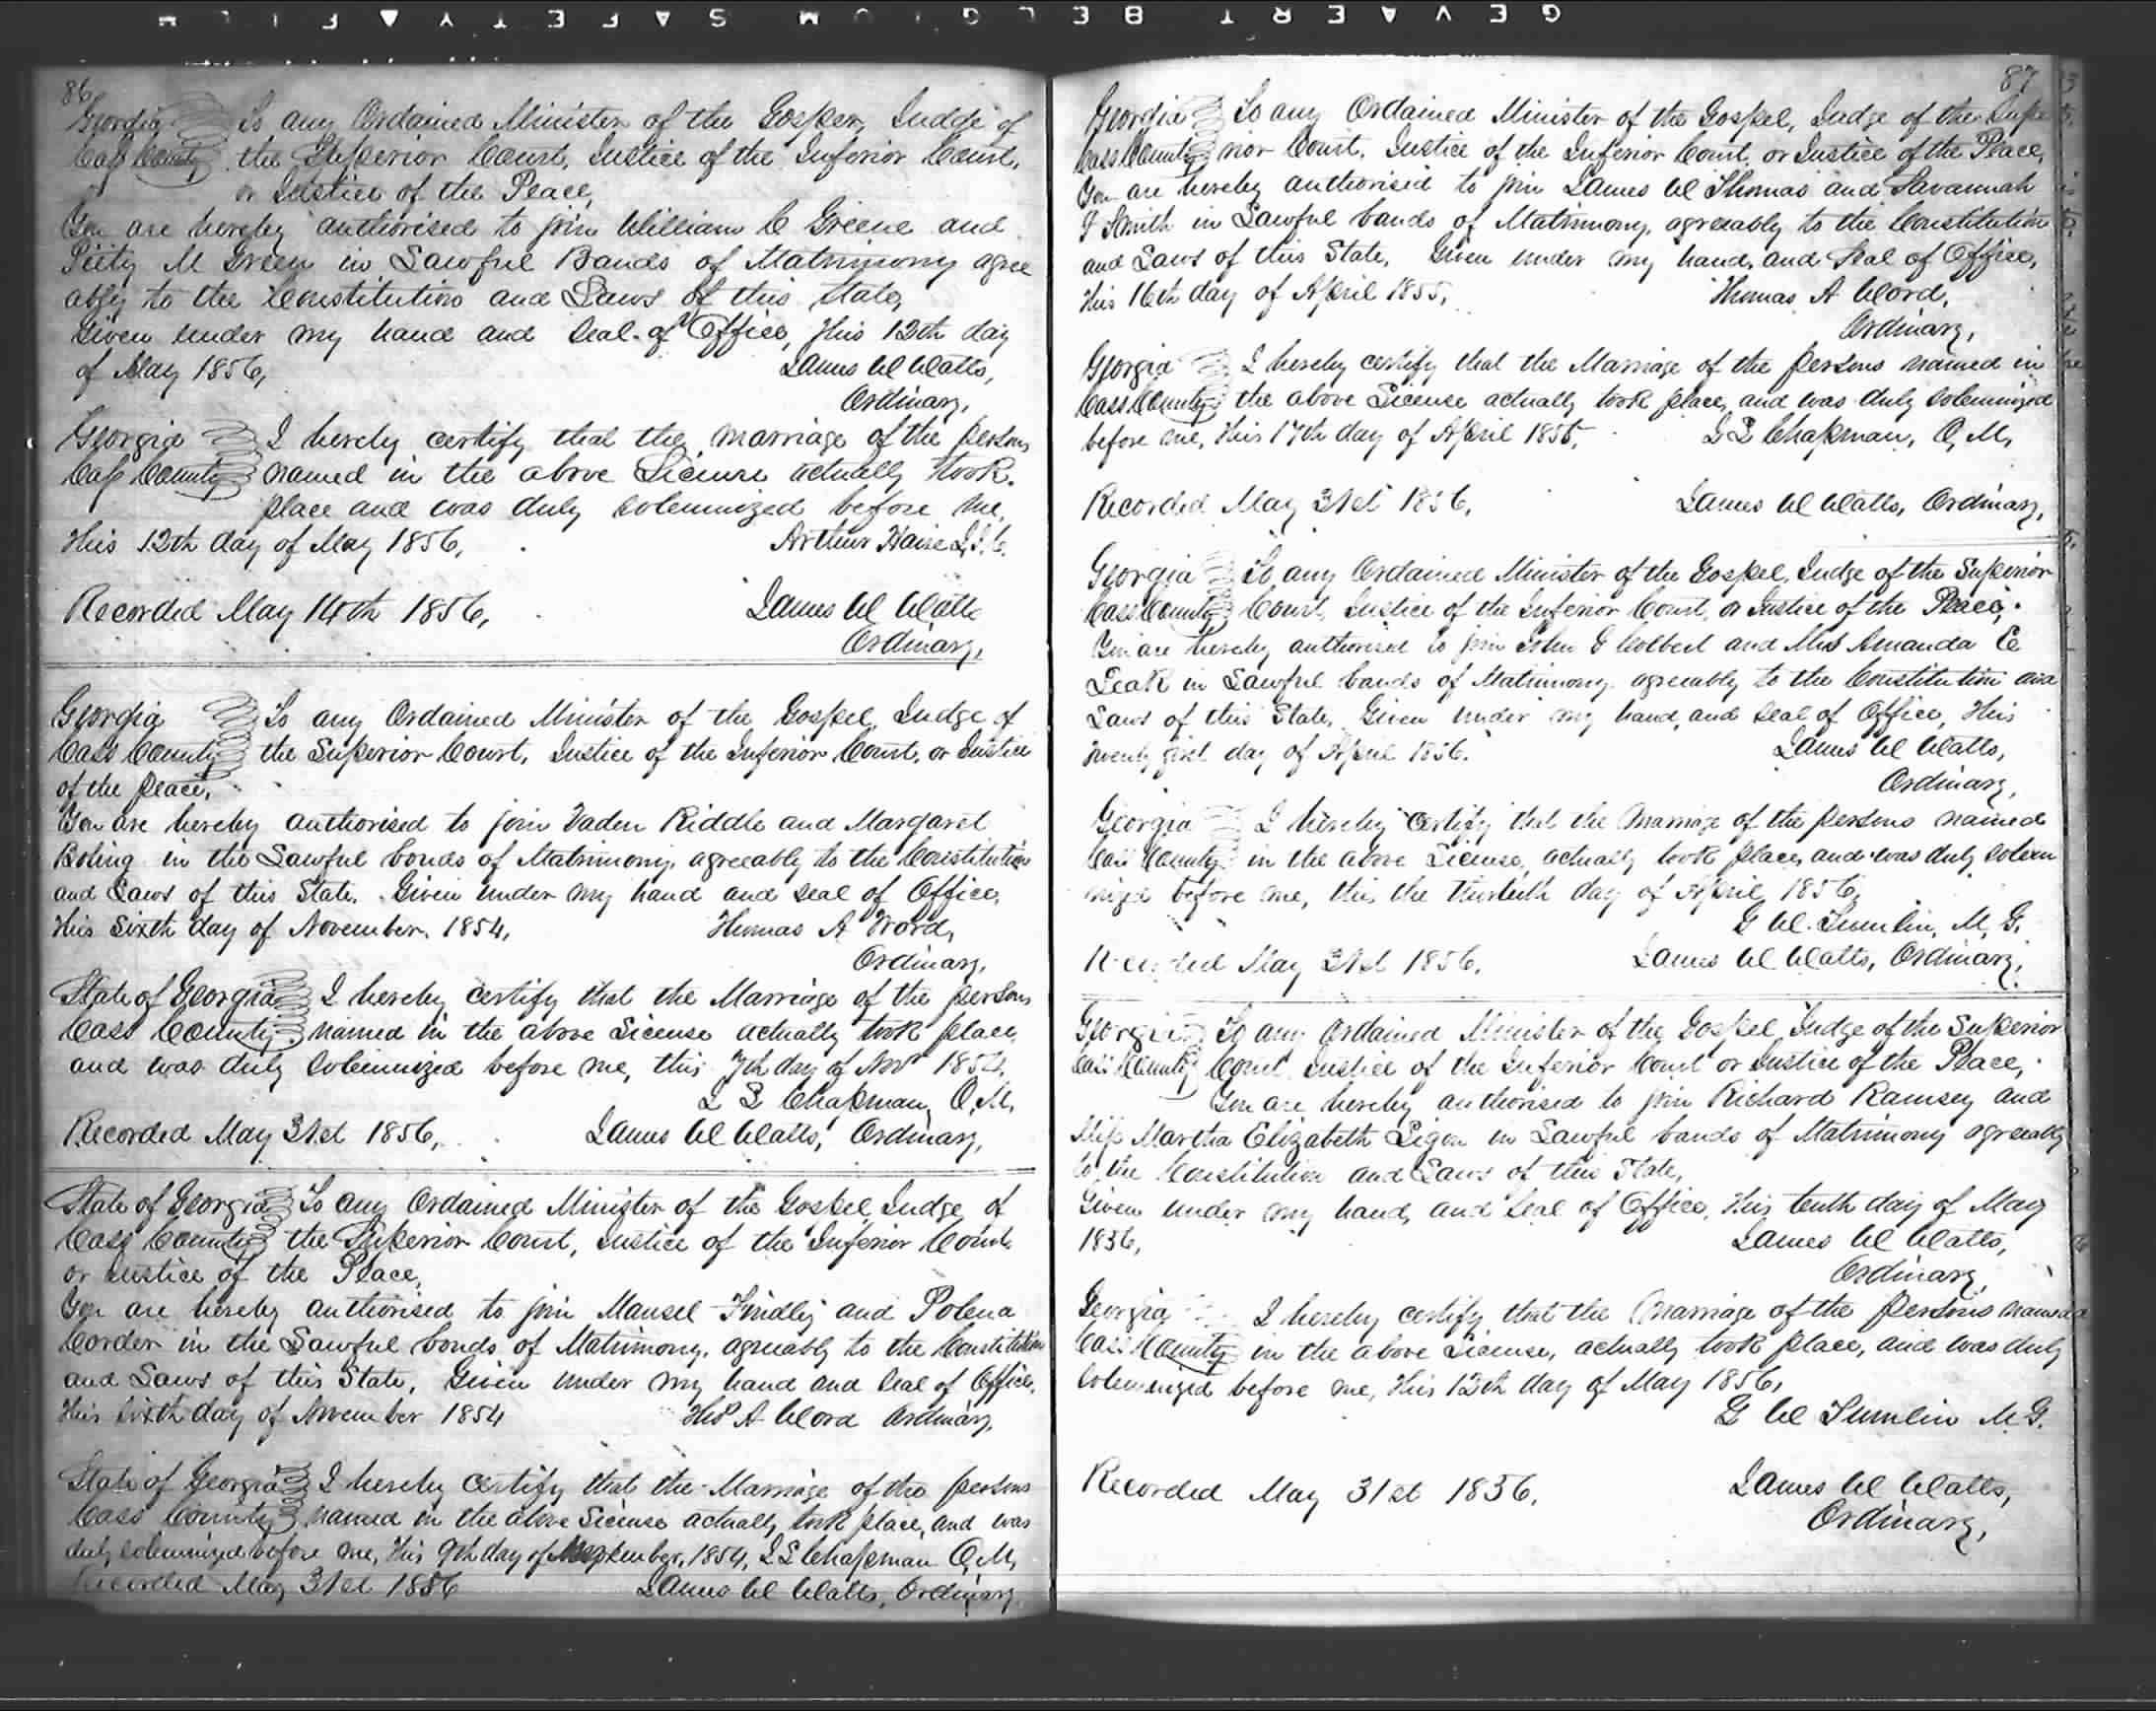 GEVAERT BELGIUM SAFETY FILM
86
Georgia To any Ordained Minister of the Gospel, Judge of
Cass County the Superior Court, Justice of the Inferior Court,
or Justice of the Peace,
You are hereby authorised to join William C Greene and
Piety M Green in Lawful Bands of Matrimony agree
ably to the Constitution and Laws of this State,
Given under my hand and Seal of Office, this 12th day
of May 1856,
James W Watts,
Ordinary,
Georgia I hereby certify that the marriage of the persons
Cass County named in the above License actually took
place and was duly solemnized before me,
this 12th day of May 1856,
Arthur Haire J.I.C.
Recorded May 14th 1856,
James W Watts
Ordinary,
Georgia To any Ordained Minister of the Gospel, Judge of
Cass County the Superior Court, Justice of the Inferior Court, or Justice
of the Peace,
You are hereby authorised to join Vaden Riddle and Margaret
Boling in the Lawful bonds of Matrimony, agreeably to the Constitution
and Laws of this State. Given under my hand and seal of Office,
this Sixth day of November, 1854,
Thomas A Word,
Ordinary,
State of Georgia I hereby certify that the Marriage of the persons
Cass County named in the above License actually took place,
and was duly solemnized before me, this 7th day of Novr 1854,
L L Chapman, O.M.
Recorded May 31st 1856,
James W Watts, Ordinary,
State of Georgia To any Ordained Minister of the Gospel, Judge of
Cass County the Superior Court, Justice of the Inferior Court
or Justice of the Peace,
You are hereby authorised to join Mansel Findley and Polena
Corder in the Lawful bonds of Matrimony, agreeably to the Constitution
and Laws of this State, Given under my hand and seal of Office,
this sixth day of November 1854
Thos A Word Ordinary,
State of Georgia I hereby certify that the Marriage of the persons
Cass County named in the above License actually took place, and was
duly solemnized before me, this 9th day of 1854, L L Chapman O,M,
Recorded May 31st 1856
James W Watts, Ordinary,
87
Georgia To any Ordained Minister of the Gospel, Judge of the Supe
Cass County rior Court, Justice of the Inferior Court, or Justice of the Peace,
You are hereby authorised to join James W Thomas and Savannah
F Smith in Lawful bands of Matrimony, agreeably to the Constitution
and Laws of this State, Given under my hand, and Seal of Office,
this 16th day of April 1855,
Thomas A Word,
Ordinary,
Georgia I hereby certify that the Marriage of the persons named in
Cass County the above License actually took place, and was duly solemnized
before me, this 17th day of April 1855,
L L Chapman, O, M,
Recorded May 31st 1856,
James W Watts, Ordinary,
Georgia To any Ordained Minister of the Gospel, Judge of the Superior
Cass County Court, Justice of the Inferior Court, or Justice of the Peace,
You are hereby authorised to join John G Colbert and Miss Amanda E
Leak in Lawful bands of Matrimony agreeably to the Constitution and
Laws of this State, Given under my hand, and seal of Office, this
twenty first day of April 1856.
James W Watts,
Ordinary,
Georgia I hereby certify that the Marriage of the persons named
Cass County in the above License, actually took place, and was duly solem
nized before me, this the thirtieth day of April 1856,
G W. Tumlin, M, G.
Recorded May 31st 1856,
James W Watts, Ordinary,
Georgia To any Ordained Minister of the Gospel Judge of the Superior
Cass County Court Justice of the Inferior Court or Justice of the Peace,
You are hereby authorised to join Richard Ramsey and
Miss Martha Elizabeth Ligon in Lawful bands of Matrimony agreeably
to the Constitution and Laws of this State,
Given under my hand, and Seal of Office, this tenth day of May
1856,
James W Watts,
Ordinary,
Georgia I hereby certify that the Marriage of the persons named
Cass County in the above License, actually took place, and was duly
solemnized before me, this 12th day of May 1856,
G W Tumlin M.G.
Recorded May 31st 1856.
James W Watts,
Ordinary,